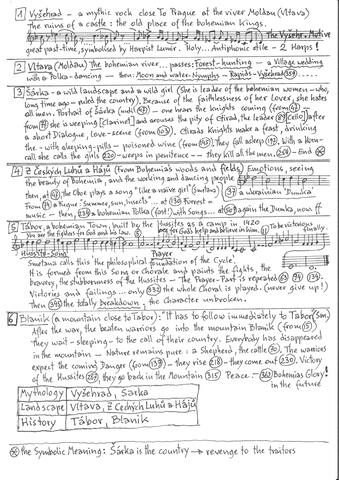 1 Vyšehrad - a mythic rock close to Prague at the river Moldau (Vltava)
The ruins of a castle: the old place of the bohemian kings.
The Vyšehr.-Motive
great past-time, symbolised by Harpist Lumir. Holy... Antiphonic style - 2 Harps!
2 Vltava (Moldau) The bohemian river ... passes: Forest-hunting - a Village wedding
with a Polka-dancing - then: Moon and water-Nymphs - Rapids - Vyšehrad 359 .....
3 Šárka - a wild landscape and a wild girl (She is leader of the bohemian women - who,
long time ago - ruled the country). Because of the faithlessness of her lover, she hates
all men. Portrait of Šárka (until 62) - one hears the Knights coming (from 62) -
from 79 she is weeping [Clarinet] and arouses the pity of Ctirad, the leader 89 [Cello] after
a short Dialogue, love-scene (from 103). Ctirads Knights make a feast, drinking
the - with sleeping-pills - poisoned wine (from 145) They fall asleep 192. With a Horn-
call she calls the girls 220 - weeps in penitence - They kill all the men. 258 - End ⊛
4 Z Českých Luhů a Hájů (From Bohemian woods and fields) Emotions, seeing
the beauty of Bohemia, and the working and dancing people
then, at 43 the Oboe plays a song "like a naïve girl" (Smetana) 37 a ukrainian "Dumka"
From 76 a Fugue: "Summer, sun, insects" ... at 130 Forest-
music - then, 239 a bohemian Polka (fast!) with Songs... at 509 again the Dumka, now ff
5 Tábor, a bohemian Town, built by the Hussites as a camp in 1420
You are the fighters for God and his law. 6 beg for Gods help and believe in him, 11 To be victorious finally.
Hussite-Song
Prayer
Smetana calls this "the philosophical foundation of the Cycle".
It is formed from this Song or Chorale and paints the fights, the
bravery, the stubbornness of the Hussites - The Prayer-Part is repeated 63 94 134
Victories and failings...only 332 the whole Choral is played. (never give up!)
Then 345 the totally breakdown, the character unbroken.
6 Blaník (a mountain close to Tábor): "It has to follow immediately to Tábor (Sm).
After the war, the beaten warriors go into the mountain Blaník (from 15)
they wait - sleeping - to the call of their country. Everybody has disappeared
in the mountain - Nature remains pure: a Shepherd, the cattle 70. The warriors
expect the coming Danger (from 139) - they rise 218 - they come out 230. Victory
of the Hussites 287 they go back in the Mountain 315 Peace - 362 Bohemias Glory!
in the future
Mythology Vyšehrad, Šarka
Landscape Vltava, Z Českých Luhů a Hájů
History Tábor, Blaník
⊛ the Symbolic Meaning: Šárka is the country → revenge to the traitors